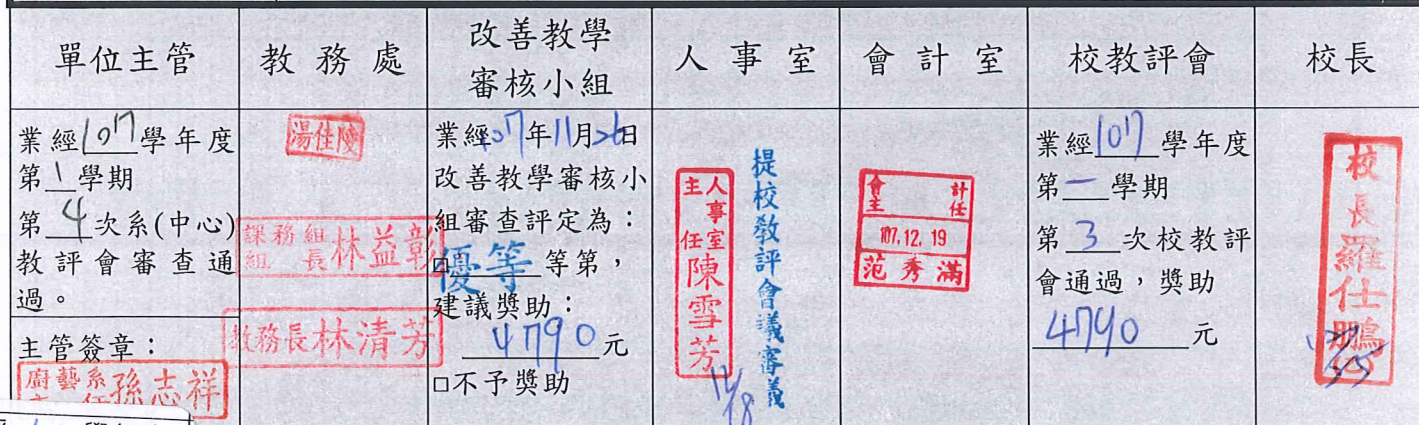 單位主管
教務處
改善教學
審核小組
人事室
會計室
校教評會
校長
業經107學年度
第1學期
第4次系(中心)
教評會審查通
過。
主管簽章：
廚藝系
主任
孫志祥
湯佳陵
課務組
組長
林益彰
教務長林清芳
業經107年11月26日
改善教學審核小
組審查評定為：
□優等等第，
建議獎助：
4790元
□不予獎助
人事室
主任
陳雪芳
12/18
提校教評會議審議
會計
主任
107.12.19
范秀滿
業經107學年度
第一學期
第3次校教評
會通過，獎助
4790元
校長羅仕鵬